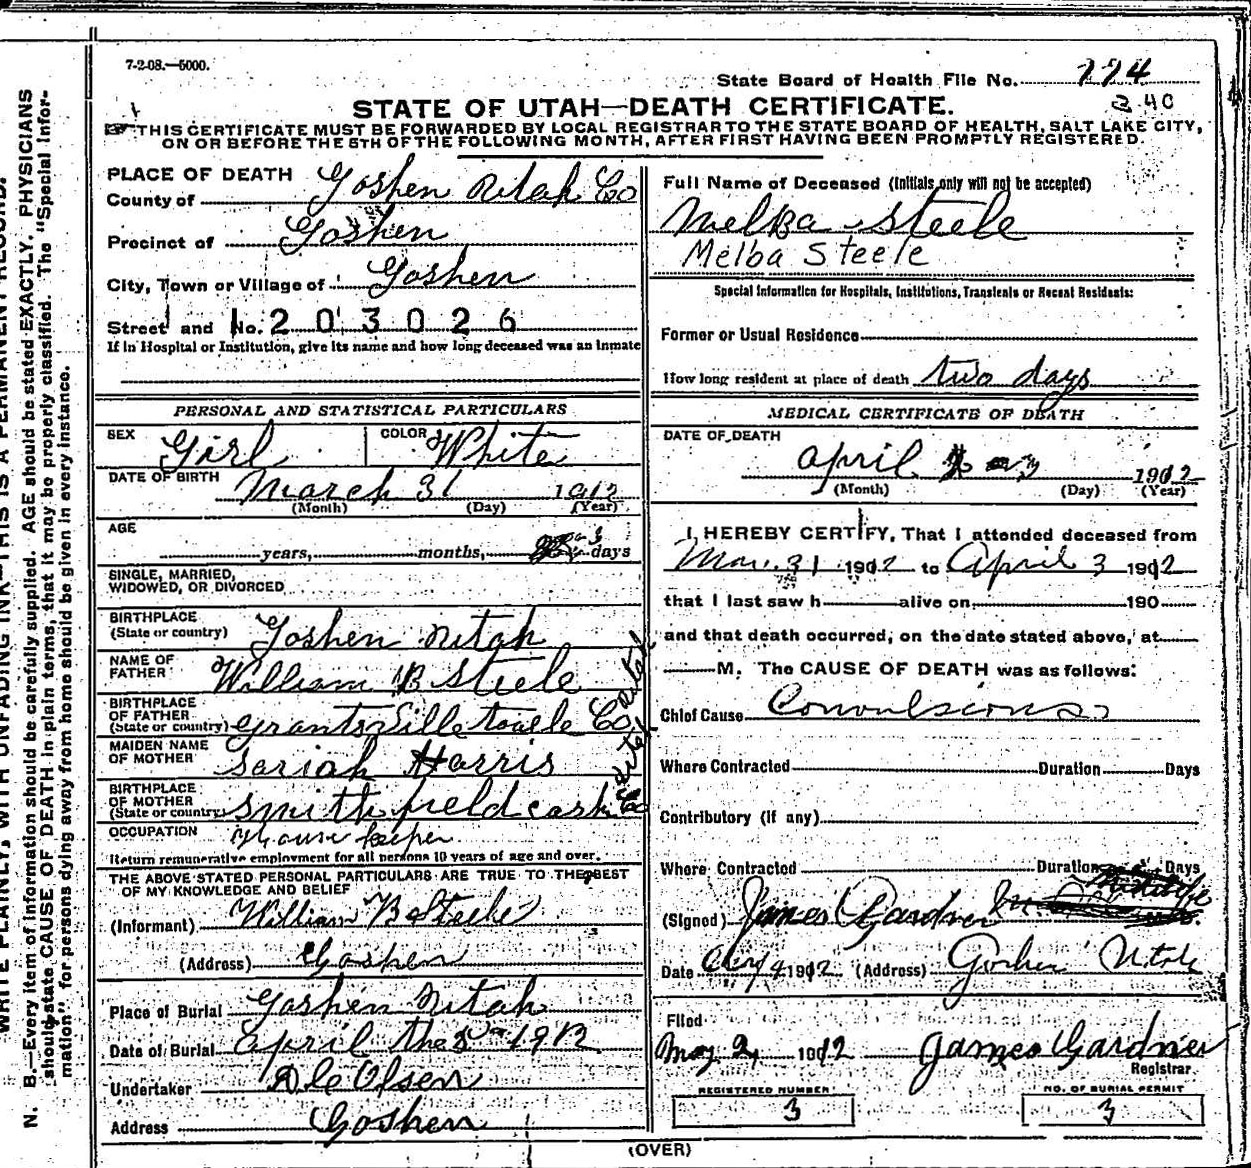 7-2-08.—5000.
State Board of Health File No. 774
STATE OF UTAH—DEATH CERTIFICATE.
340
THIS CERTIFICATE MUST BE FORWARDED BY LOCAL REGISTRAR TO THE STATE BOARD OF HEALTH, SALT LAKE CITY,
ON OR BEFORE THE 5TH OF THE FOLLOWING MONTH, AFTER FIRST HAVING BEEN PROMPTLY REGISTERED.
PLACE OF DEATH
County of Goshen Utah Co
Precinct of Goshen
City, Town or Village of Goshen
Street and No. 203026
If in Hospital or Institution, give its name and how long deceased was an inmate
PERSONAL AND STATISTICAL PARTICULARS
SEX Girl COLOR White
DATE OF BIRTH March 31 1912
(Month) (Day) (Year)
AGE
years, months, 3 days
SINGLE, MARRIED,
WIDOWED, OR DIVORCED
BIRTHPLACE
(State or country) Goshen Utah
NAME OF
FATHER William B Steele
BIRTHPLACE
OF FATHER
(State or country) Grantsville tooele Co utah
MAIDEN NAME
OF MOTHER Sariah Harris
BIRTHPLACE
OF MOTHER
(State or country) Smithfield cash Co utah
OCCUPATION House keeper
Return remunerative employment for all persons 10 years of age and over.
THE ABOVE STATED PERSONAL PARTICULARS ARE TRUE TO THE BEST
OF MY KNOWLEDGE AND BELIEF
(Informant) William B Steele
(Address) Goshen
Place of Burial Goshen Utah
Date of Burial April the 5 1912
Undertaker Ole Olsen
Address Goshen
Full Name of Deceased (Initials only will not be accepted)
Melba Steele
Melba Steele
Special Information for Hospitals, Institutions, Transients or Recent Residents:
Former or Usual Residence
How long resident at place of death two days
MEDICAL CERTIFICATE OF DEATH
DATE OF DEATH
April 3 1912
(Month) (Day) (Year)
I HEREBY CERTIFY, That I attended deceased from
Mar. 31 1912 to April 3 1912
that I last saw h alive on 190
and that death occurred, on the date stated above, at
M. The CAUSE OF DEATH was as follows:
Chief Cause Convulsions
Where Contracted Duration Days
Contributory (if any)
Where Contracted Duration Days
(Signed) James Gardner M. D.
Date 4 1912 (Address) Goshen Utah
Filed
May 2, 1912 James Gardner
Registrar
REGISTERED NUMBER
3
NO. OF BURIAL PERMIT
3
(OVER)
WRITE PLAINLY, WITH UNFADING INK—THIS IS A PERMANENT RECORD.
N. B.—Every item of information should be carefully supplied. AGE should be stated EXACTLY. PHYSICIANS
should state CAUSE OF DEATH in plain terms, that it may be properly classified. The "Special Infor-
mation" for persons dying away from home should be given in every instance.